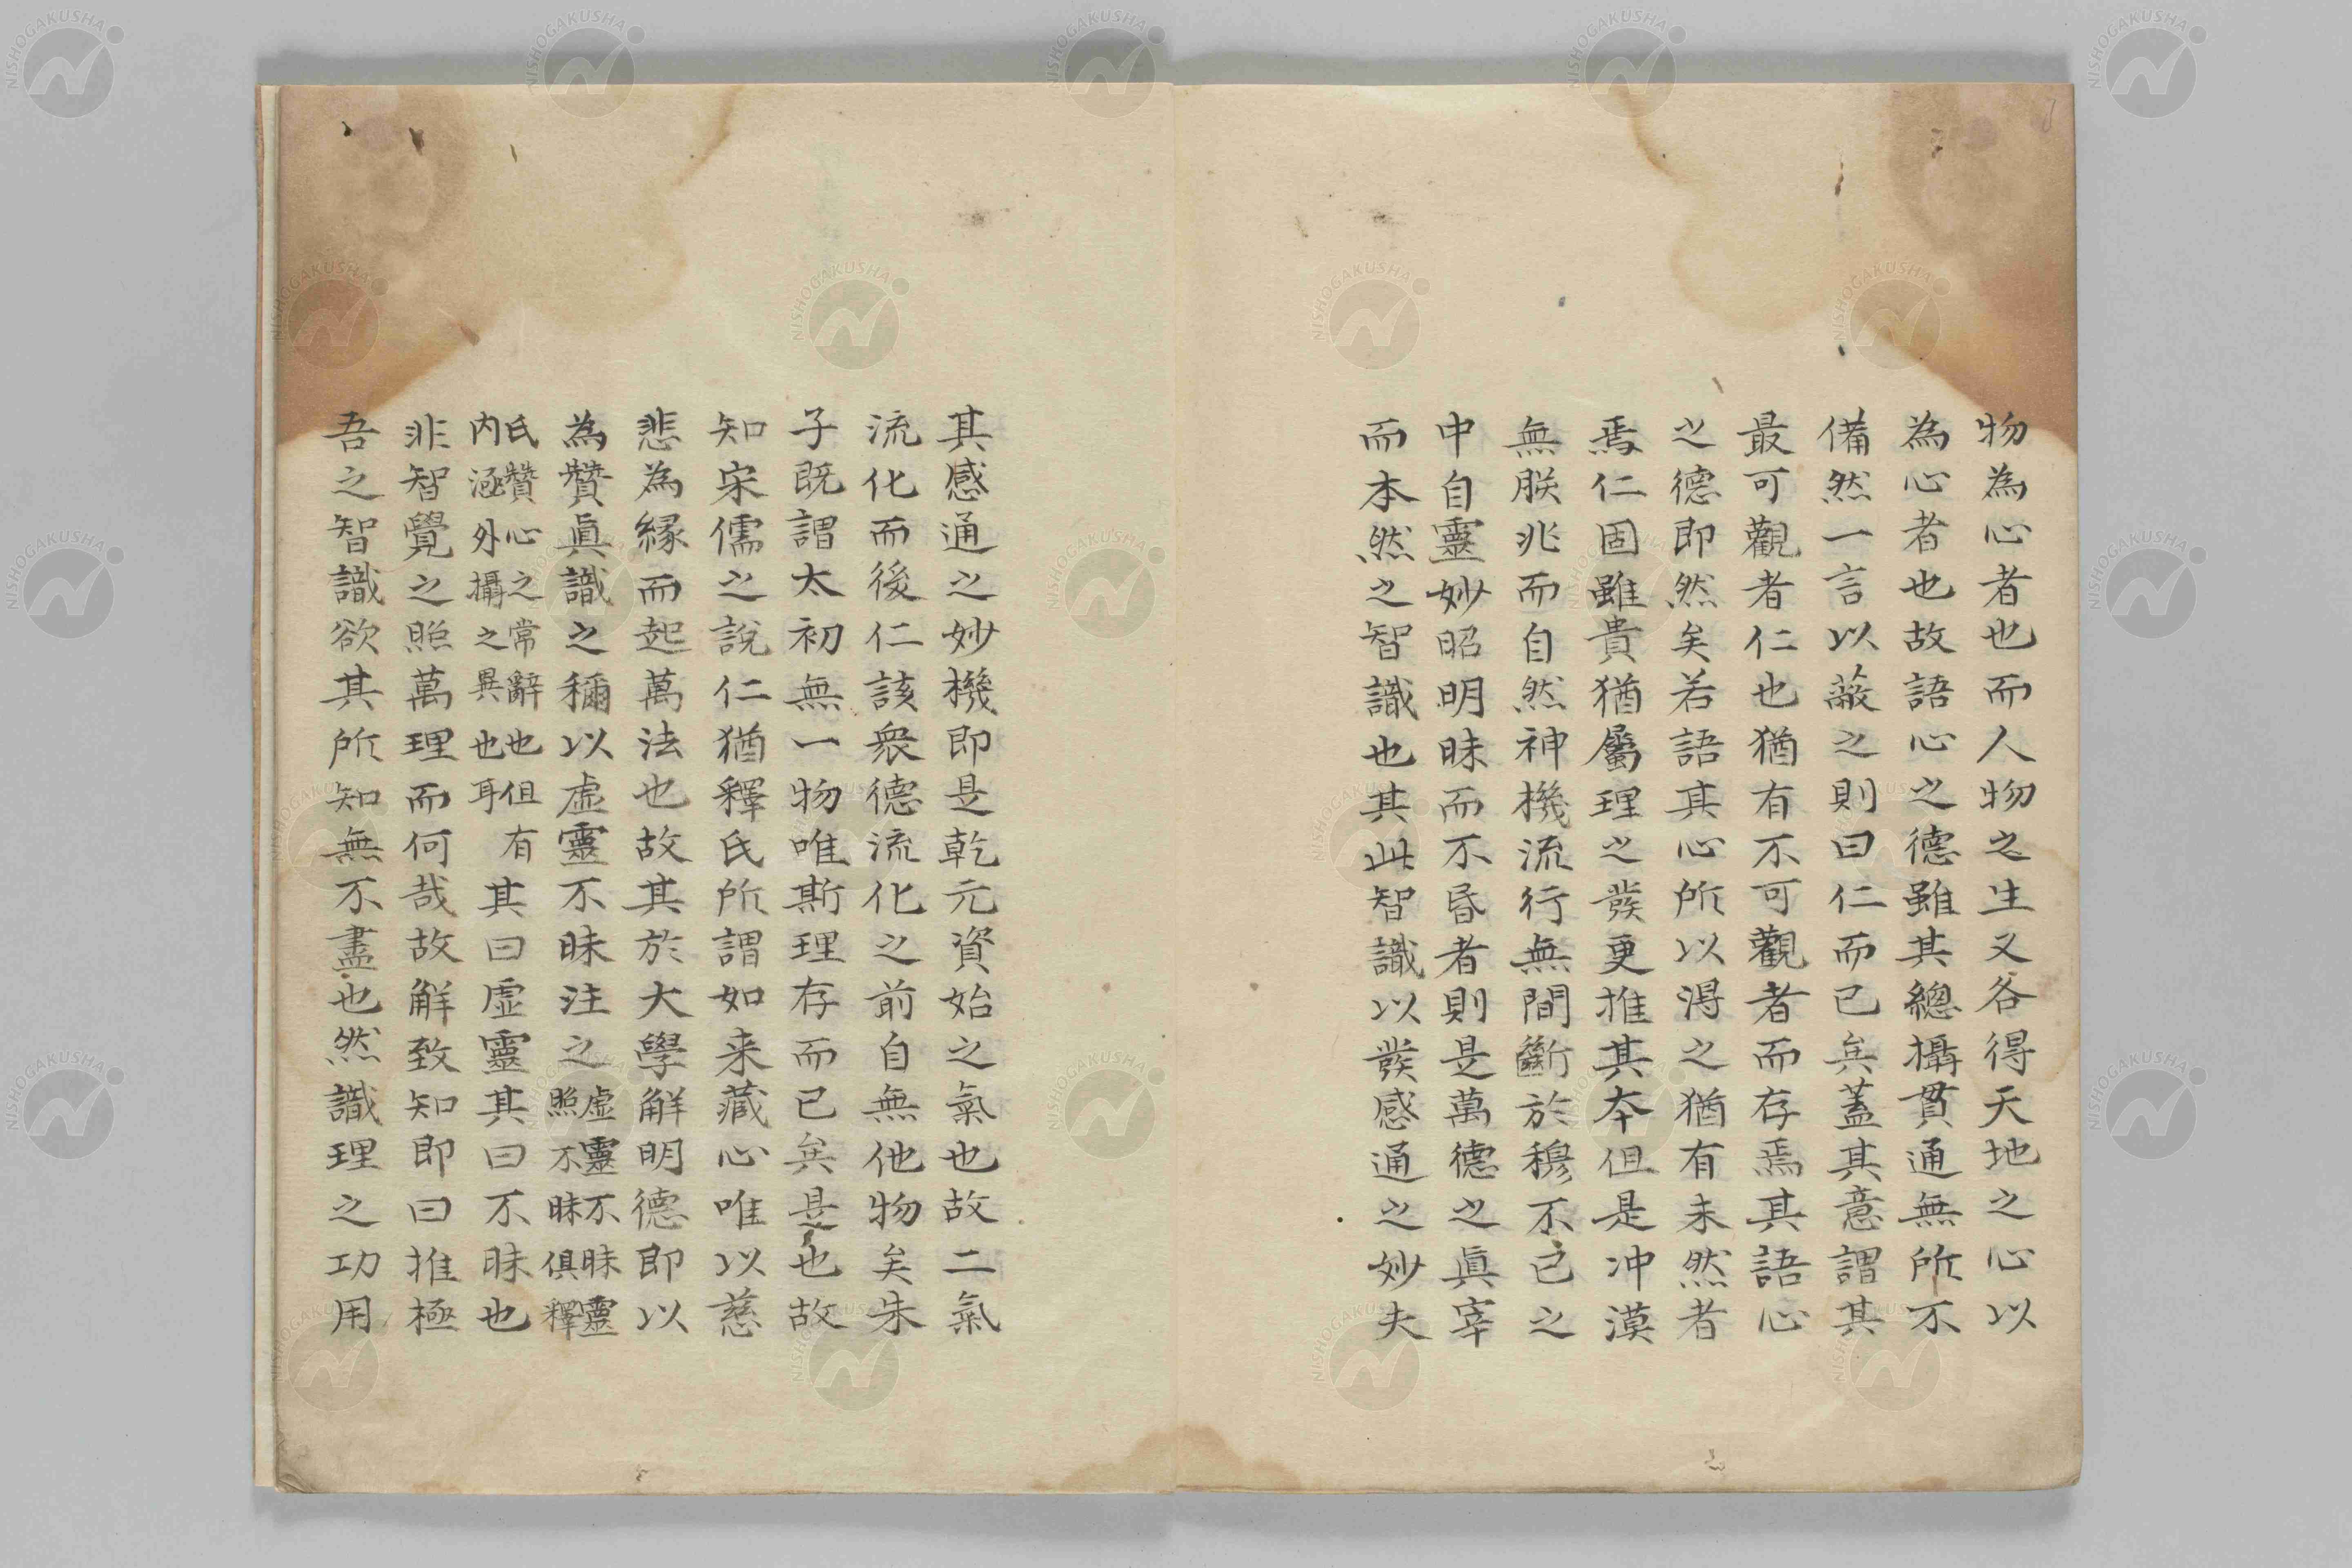 物為心者也而人物之生又各得天地之心以
為心者也故語心之德雖其總攝貫通無所不
備然一言以蔽之則曰仁而已矣蓋其意謂其
最可觀者仁也猶有不可觀者而存焉其語心
之德即然矣若語其心所以淂之猶有未然者
焉仁固雖貴猶屬理之發更推其本但是冲漠
無朕兆而自然神機流行無間斷於穆不已之
中自靈妙昭明昧而不昏者則是萬德之眞宰
而本然之智識也其此智識以發感通之妙夫
其感通之妙機即是乾元資始之氣也故二氣
流化而後仁該衆德流化之前自無他物矣朱
子既謂太初無一物唯斯理存而已矣是也故
知宋儒之說仁猶釋氏所謂如来藏心唯以慈
悲為縁而起萬法也故其於大學解明德即以
為贊眞識之稱以虛靈不昧注之虛靈不昧靈
照不昧俱釋
氏贊心之常辭也但有
内涵外攝之異也耳
其曰虛靈其曰不昧也
非智覺之照萬理而何哉故解致知即曰推極
吾之智識欲其所知無不盡也然識理之功用
NISHOGAKUSHA